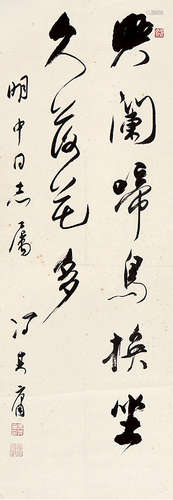 興闌啼鳥換坐
久落花多
明中同志屬
馮其庸